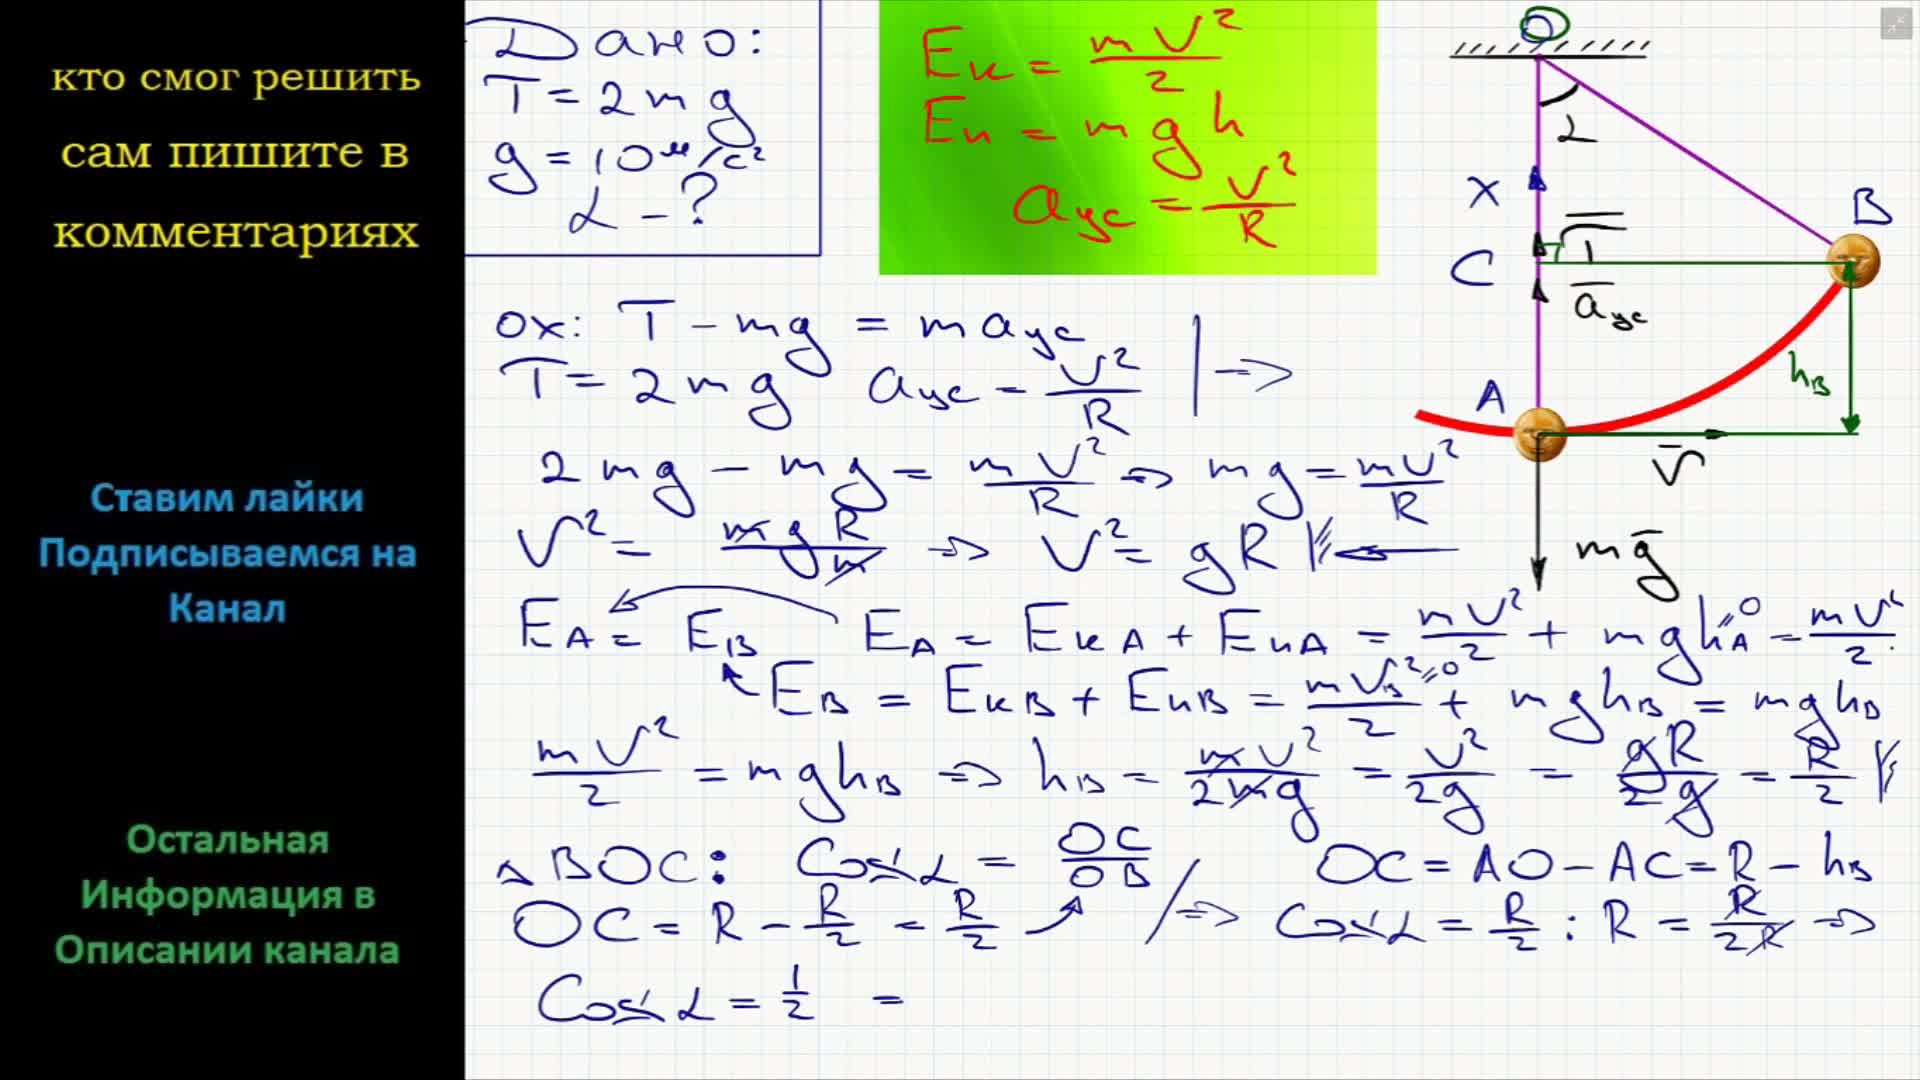 кто смог решить
сам пишите в
комментариях
Ставим лайки
Подписываемся на
Канал
Остальная
Информация в
Описании канала
Дано:
T = 2mg
g = 10 м/с²
α - ?
Eк = mV²/2
Eп = mgh
aцс = V²/R
ox: T - mg = maцс
T = 2mg aцс = V²/R | =>
2mg - mg = mV²/R => mg = mV²/R
V² = mgR/m => V² = gR
EA = EB EA = EкA + EпA = mV²/2 + mghA = mV²/2
EB = EкB + EпB = mVB²/2 + mghB = mghB
mV²/2 = mghB => hB = mV²/2mg = V²/2g = gR/2g = R/2
△BOC: Cosα = OC/OB OC = AO - AC = R - hB
OC = R - R/2 = R/2 => Cosα = R/2 : R = R/2R =>
Cosα = 1/2 =
O
α
X
T
B
C
aцс
hB
A
V
mg
0
=0